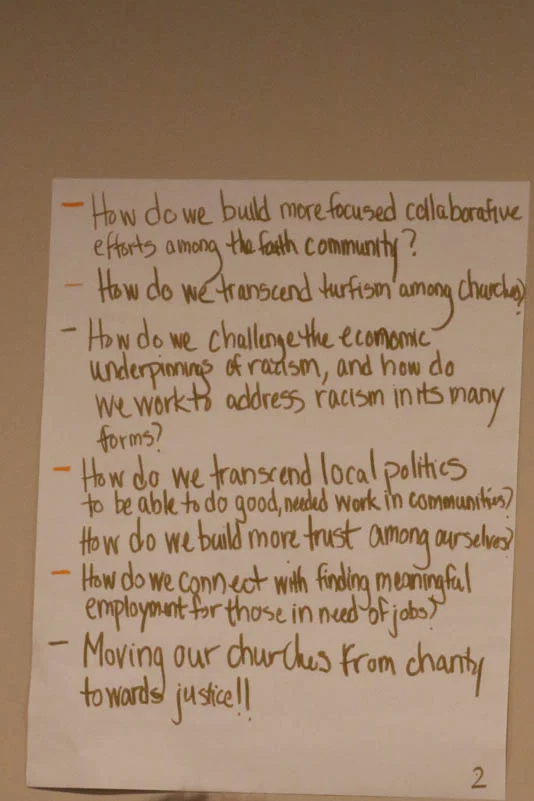 - How do we build more focused collaborative
efforts among the faith community?
- How do we transcend turfism among churches?
- How do we challenge the economic
underpinnings of racism, and how do
we work to address racism in its many
forms?
- How do we transcend local politics
to be able to do good, needed work in communities?
How do we build more trust among ourselves?
- How do we connect with finding meaningful
employment for those in need of jobs?
- Moving our churches from charity
towards justice!!
2